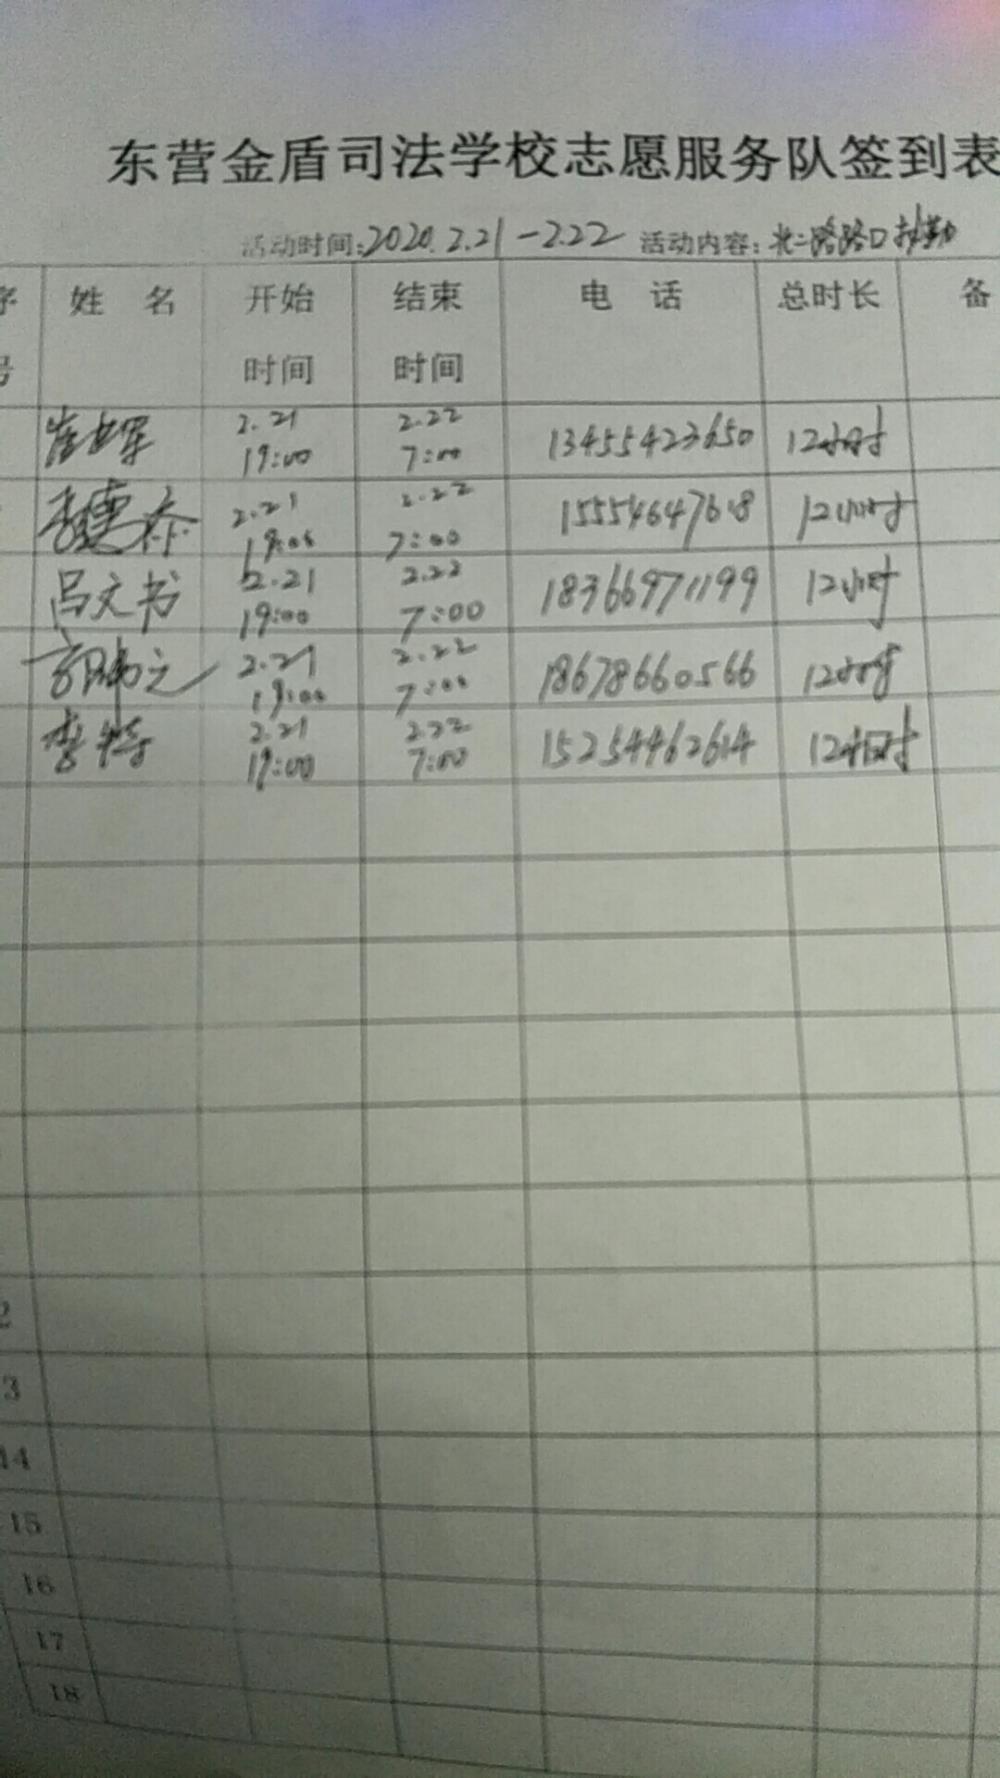 东营金盾司法学校志愿服务队签到表
活动时间:2020.2.21-2.22 活动内容:北二路路口执勤
序号 姓 名 开始时间 结束时间 电 话 总时长 备
2.21 19:00 2.22 7:00 13455423650 12小时
2.21 19:00 2.22 7:00 12小时
吕文书 2.21 19:00 2.22 7:00 18366971199 12小时
2.21 19:00 2.22 7:00 18678660566 12小时
李特 2.21 19:00 2.22 7:00 15254462614 12小时
2
3
14
15
16
17
18